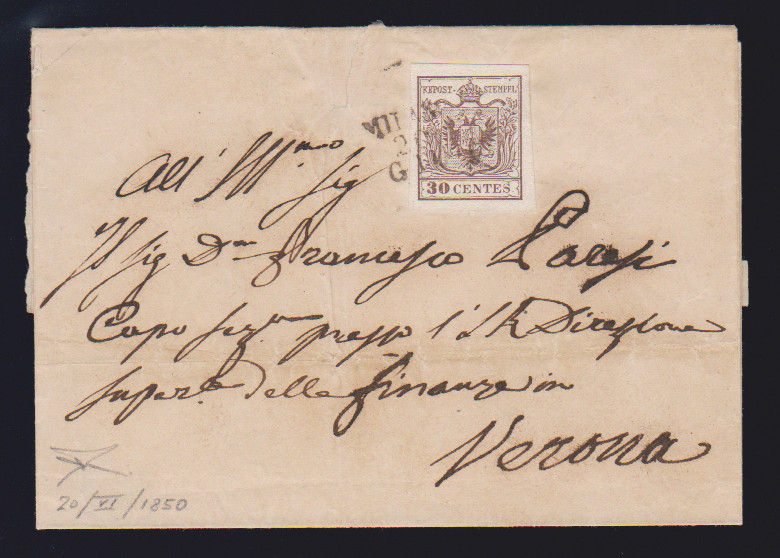 KKPOST-STEMPEL
MILA
2
G
30 CENTES
All' Ill.mo Sig
Il Sig Dn Francesco Paresi
Capo Sez.e presso l'I R Direzione
Super.e delle Finanze in
Verona
20/VI/1850